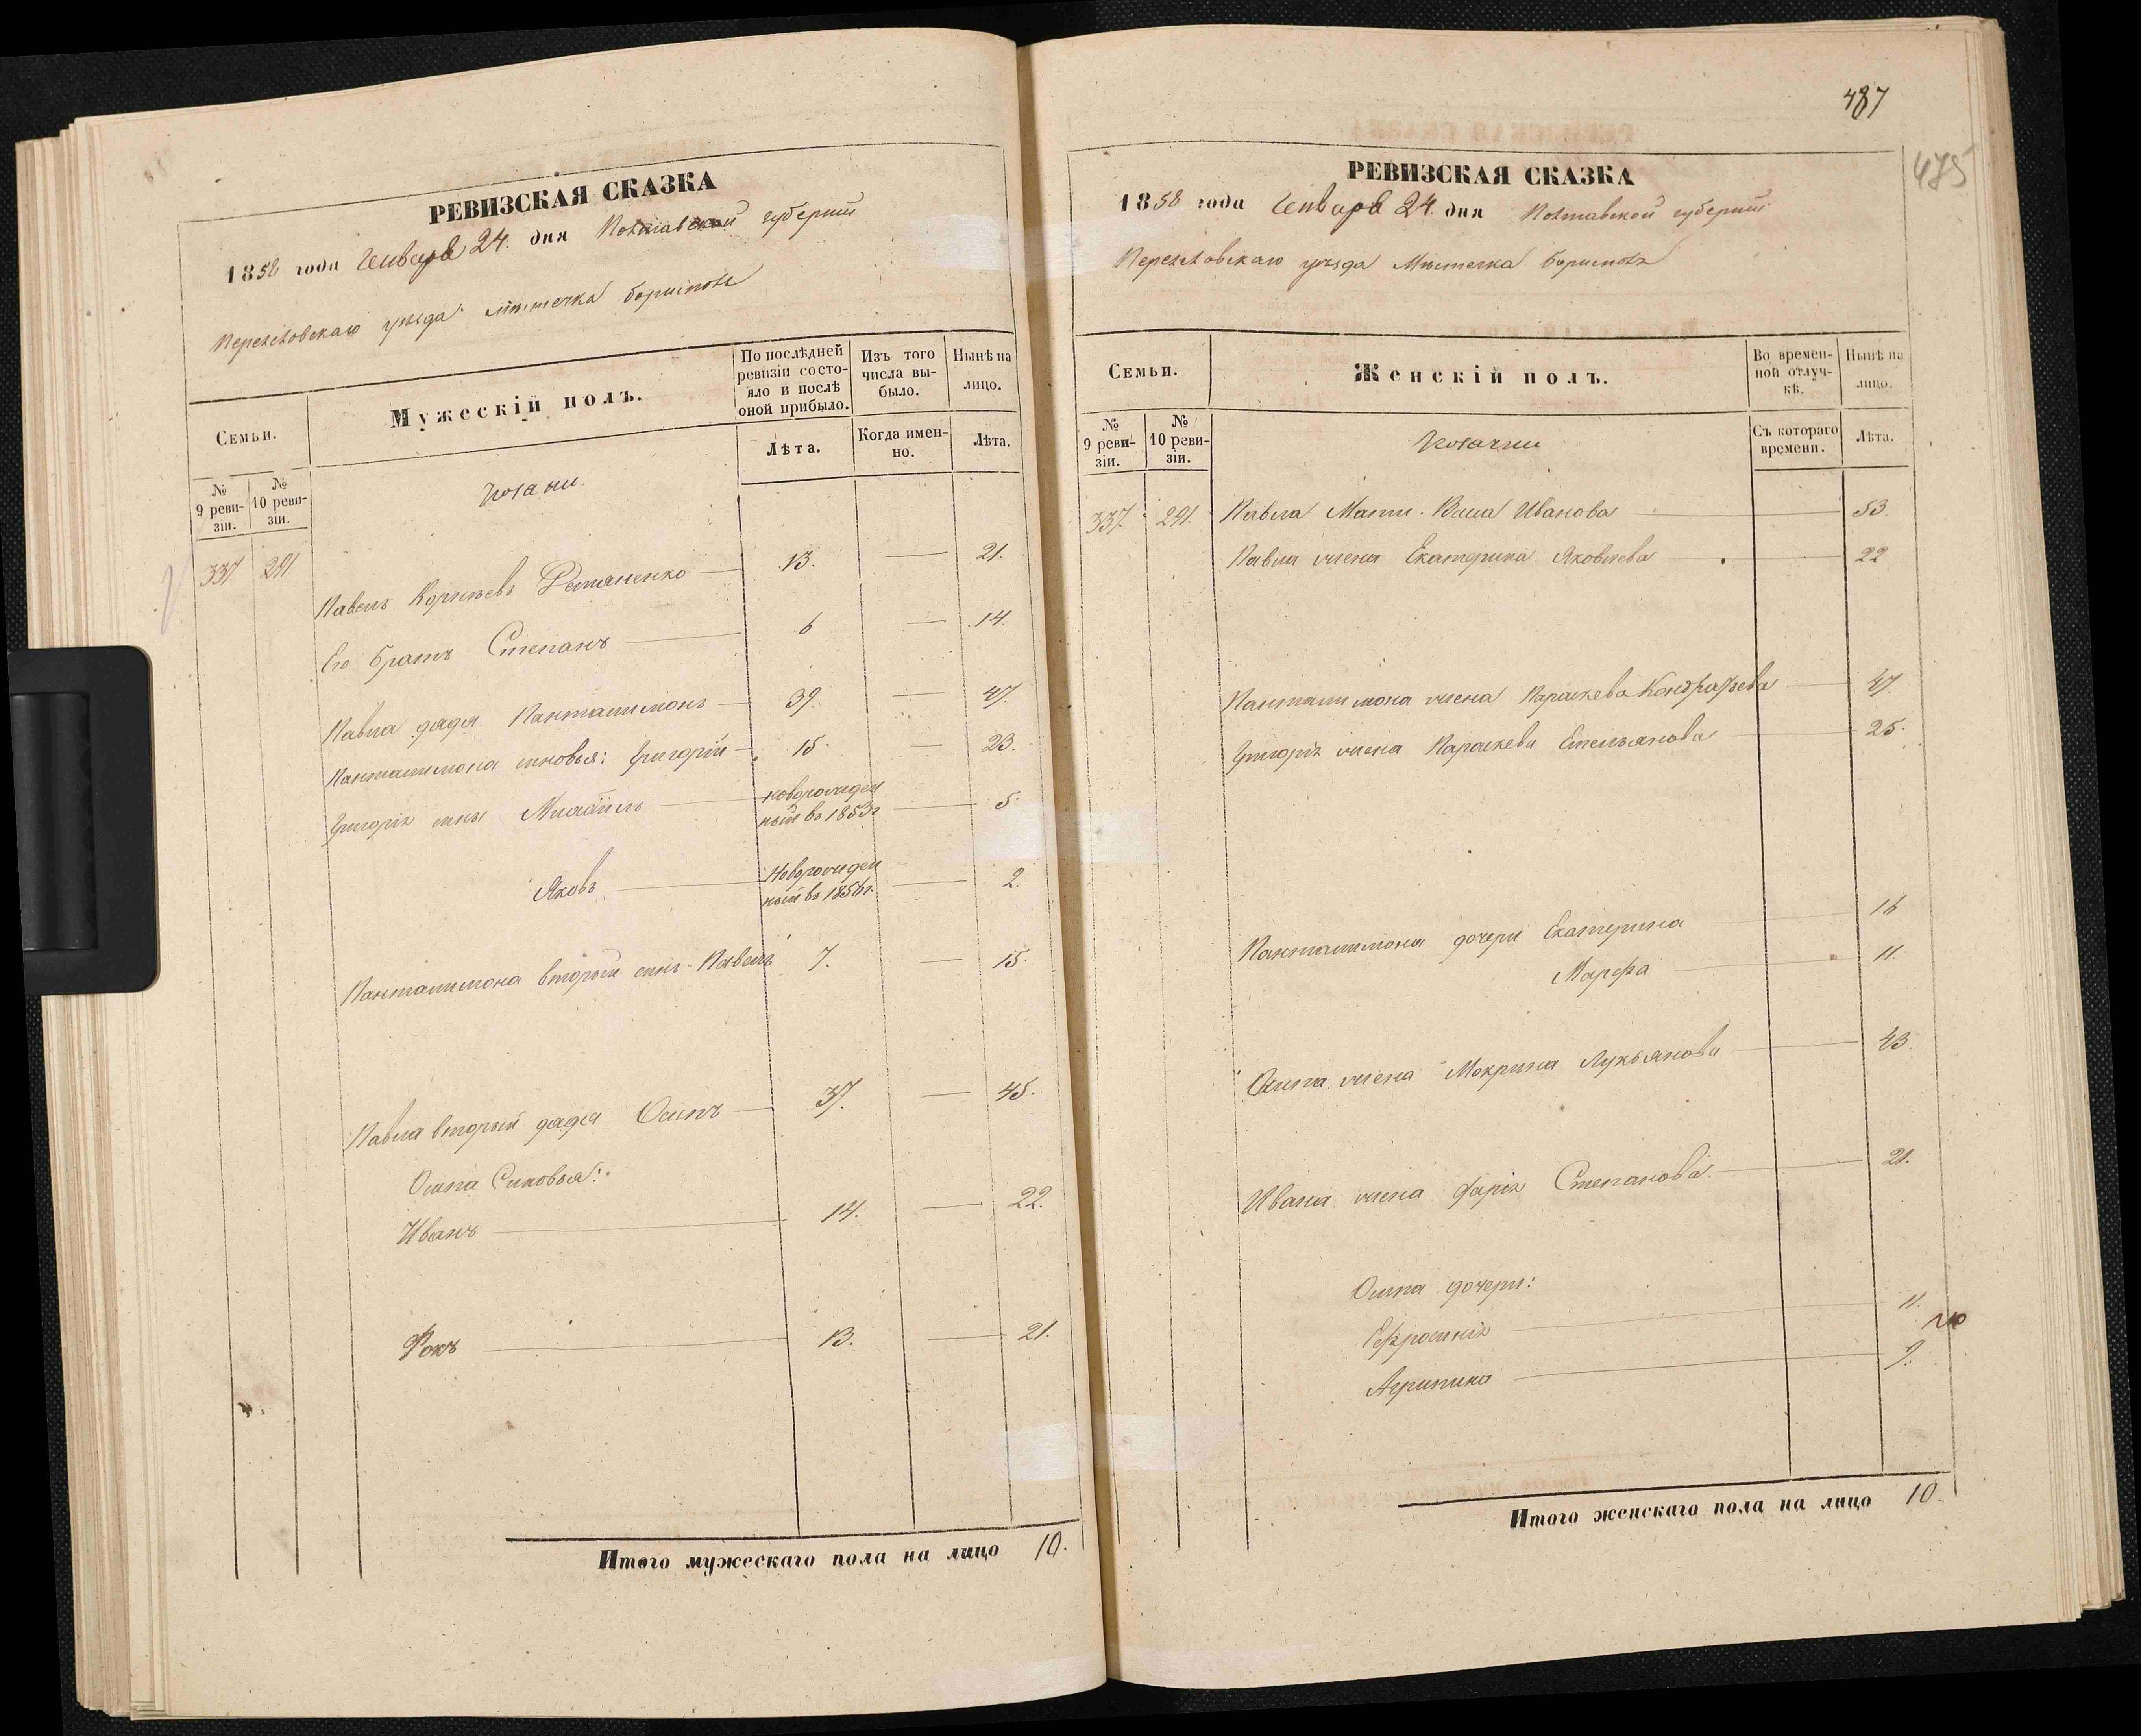 РЕВИЗСКАЯ СКАЗКА
1858 года Января 24. дня Полтавской губерніи
Переяславскаго уѣзда мѣстечка Борисполя
Семьи.
Мужескій полъ.
По послѣдней ревизіи состояло и послѣ оной прибыло.
Изъ того числа выбыло.
Нынѣ на лицо.
Лѣта.
Когда именно.
Лѣта.
№ 9 ревизіи.
№ 10 ревизіи.
Козаки.
337 291
Павелъ Корнѣевъ 13. — 21.
Его братъ Степанъ 6 — 14.
Павла дядя Панталимонъ 39. — 47
Панталимона сыновья: Григорій 15. — 23.
Григорія сыны Михаилъ новорожденный въ 1853г — 5.
Яковъ Новорожденный въ 1856г. — 2.
Панталимона вторый сынъ Павелъ 7. — 15.
Павла вторый дядя Осипъ 37. — 45.
Осипа Сыновья:
Иванъ 14. — 22.
Фокъ 13. — 21.
Итого мужескаго пола на лицо 10.
487
475
РЕВИЗСКАЯ СКАЗКА
1858 года Января 24. дня Полтавской губерніи
Переяславскаго уѣзда Мѣстечка Борисполя
Семьи.
Женскій полъ.
Во временной отлучкѣ.
Нынѣ на лицо.
№ 9 ревизіи.
№ 10 ревизіи.
Козачки
Съ котораго времени.
Лѣта.
337. 291. Павла Мати Иванова 53.
Павла жена Екатерина Яковлева 22
Панталимона жена Параскева Кондратьева 47
Григорія жена Параскева Емельянова 25.
Панталимона дочери Екатерина 16
Марфа 11.
Осипа жена Мокрина Лукьянова 43.
Ивана жена Дарія Степанова 21.
Осипа дочери:
Ефросинія 11
Агрипина 9.
Итого женскаго пола на лицо 10.